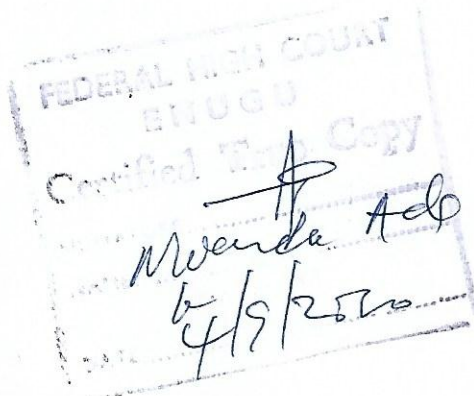 FEDERAL HIGH COURT
ENUGU
Certified True Copy
Ade
4/9/2020